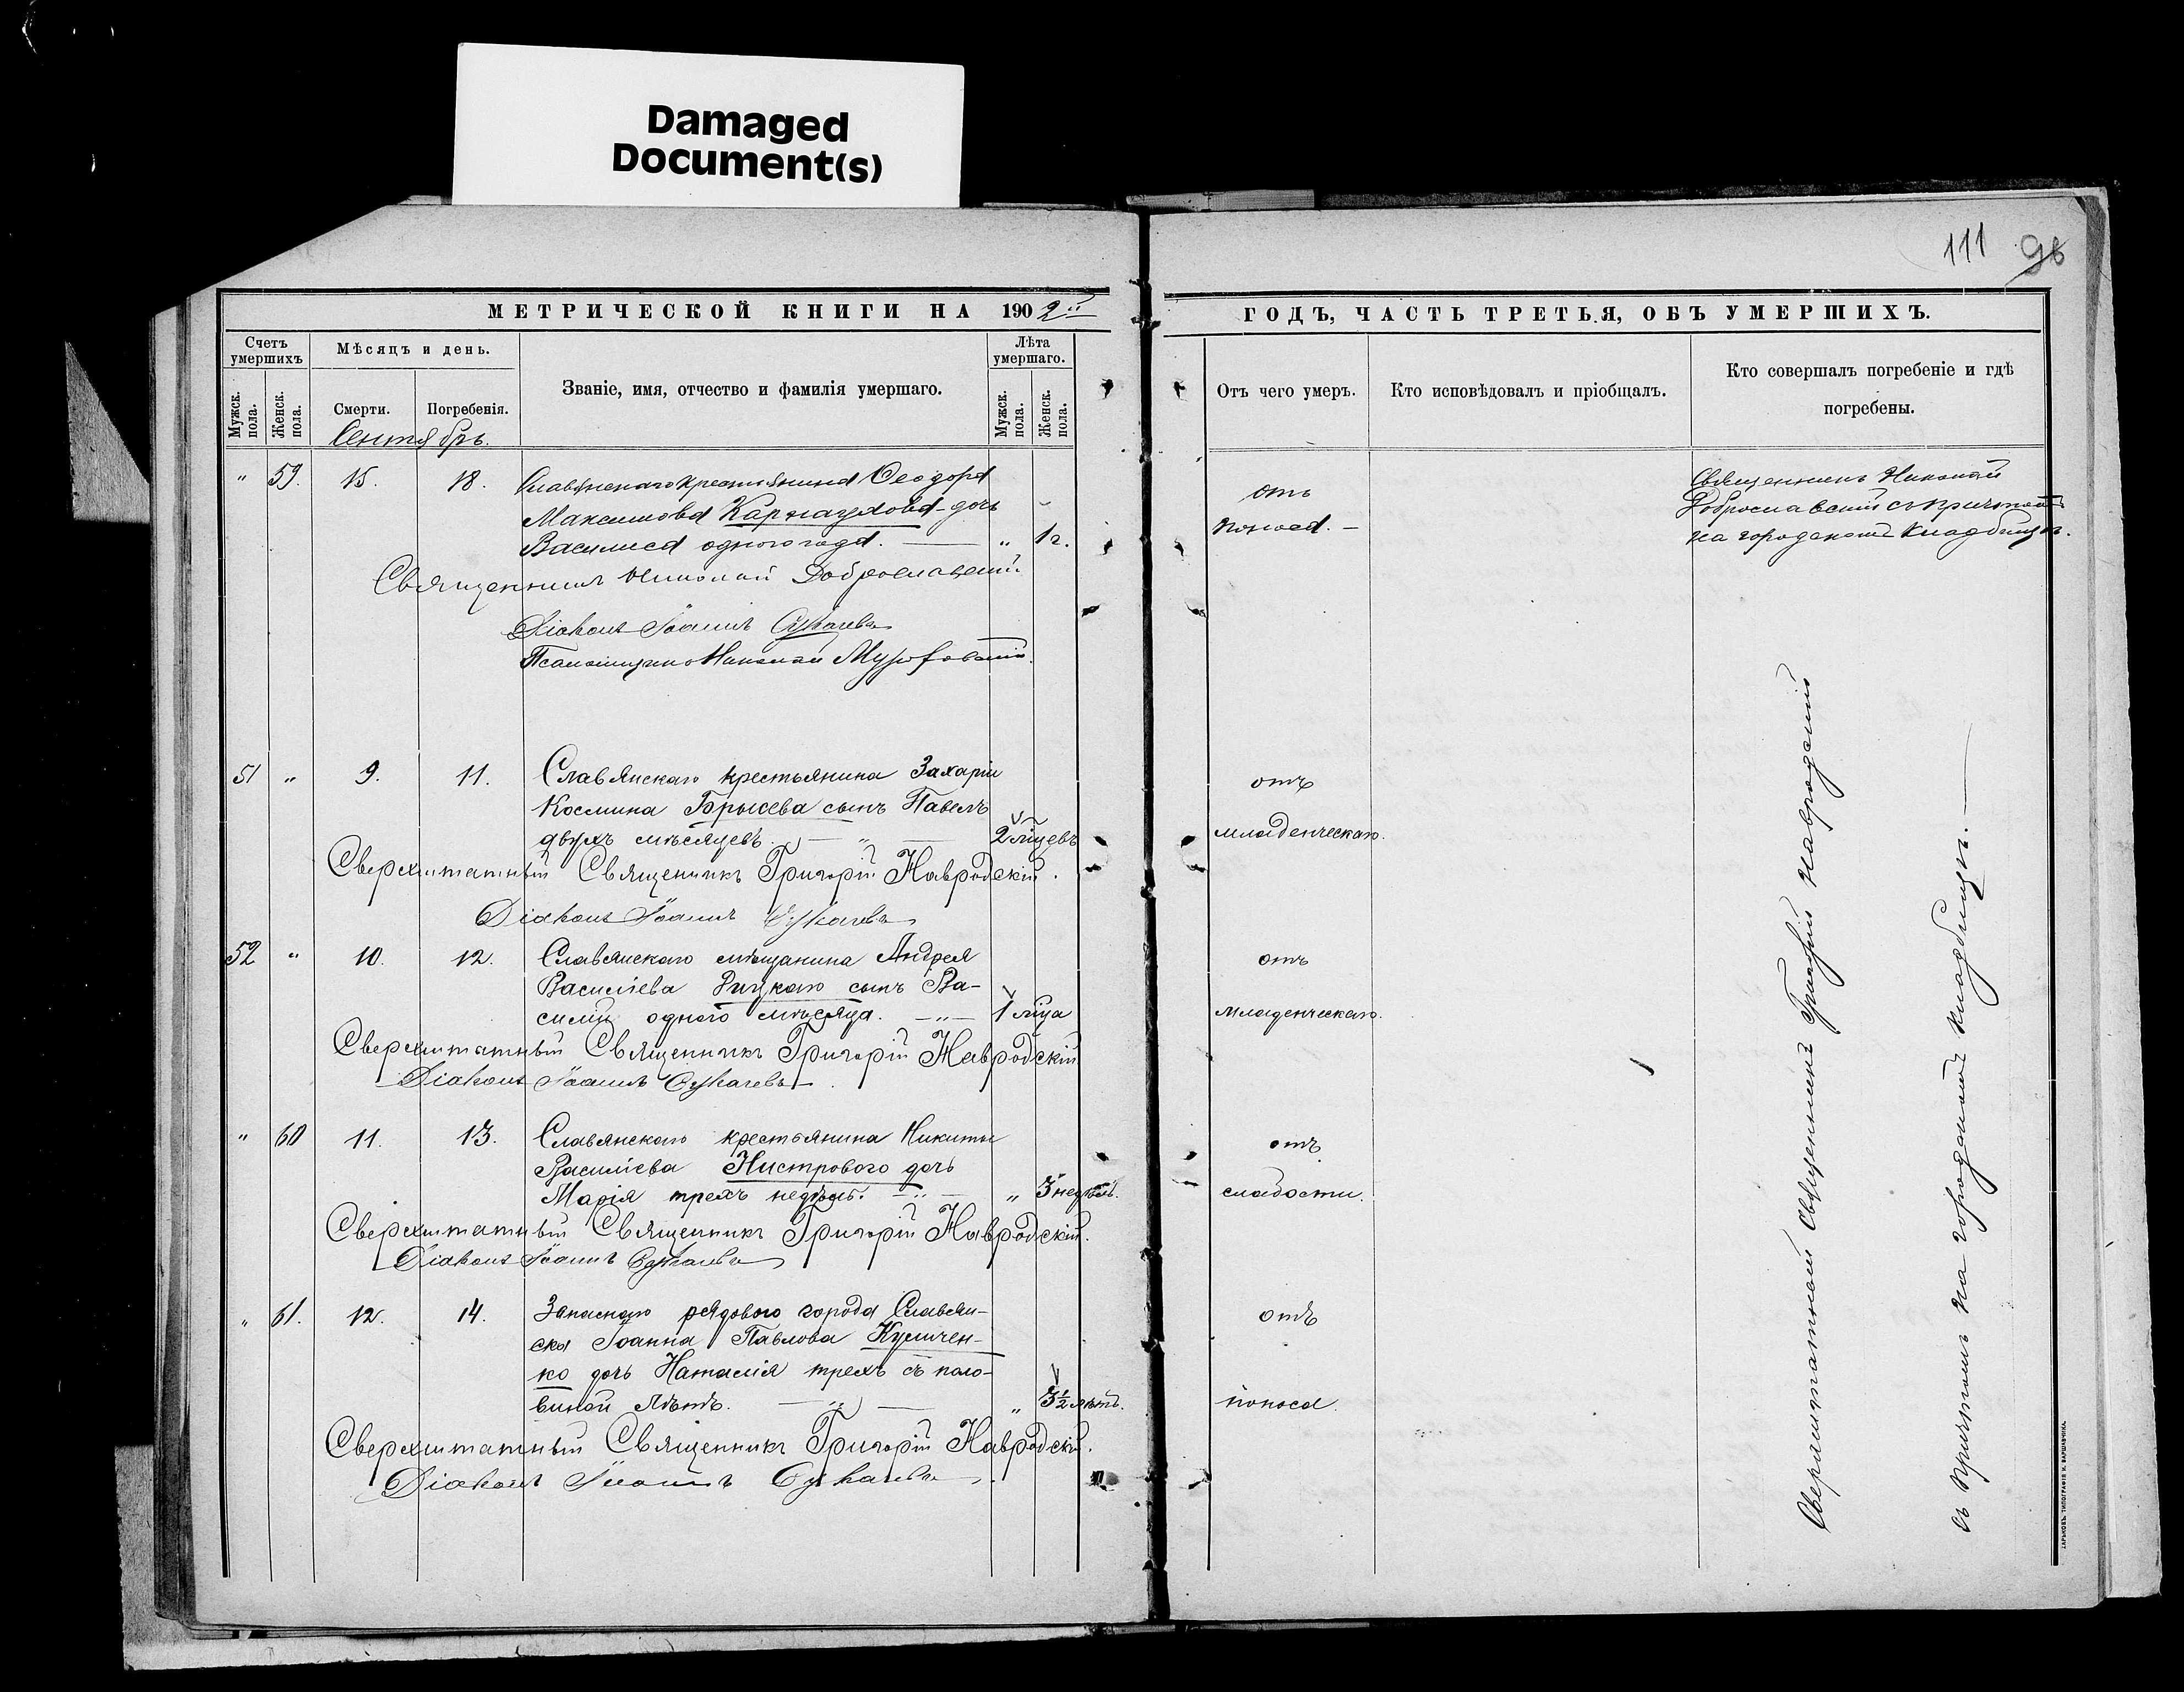 Damaged
Document(s)
111 96
МЕТРИЧЕСКОЙ КНИГИ НА 1902й
ГОДЪ, ЧАСТЬ ТРЕТЬЯ, ОБЪ УМЕРШИХЪ.
Счетъ умершихъ
Мѣсяцъ и день.
Званіе, имя, отчество и фамилія умершаго.
Лѣта умершаго.
Мужск. пола.
Женск. пола.
Смерти.
Погребенія.
Мужск. пола.
Женск. пола.
Отъ чего умеръ.
Кто исповѣдовалъ и пріобщалъ.
Кто совершалъ погребеніе и гдѣ
погребены.
Сентябрь.
" 59. 15. 18. Славянскаго крестьянина Ѳеодора
Максимова Карнаухова дочь
Василиса одного года. — " 1 г.
отъ
поноса. —
Священникъ Николай
Доброславскій съ причтомъ
на городскомъ кладбищѣ.
Священникъ Николай Доброславскій
Діаконъ Іоаннъ Сукачевъ
Псаломщикъ Николай
51 " 9. 11. Славянскаго крестьянина Захаріи
Космина Борысева сынъ Павелъ
двухъ мѣсяцевъ. — " — 2 м҃цевъ
отъ
младенческаго.
Сверхштатный Священникъ Григорій Навродскій.
Діаконъ Іоаннъ Сукачевъ
52 " 10. 12. Славянскаго мѣщанина Андрея
Василіева Рицкаго сынъ Ва-
силій одного мѣсяца. — " — 1 м҃ца
отъ
младенческаго.
Сверхштатный Священникъ Григорій Навродскій
Діаконъ Іоаннъ Сукачевъ
" 60 11. 13. Славянскаго крестьянина Никиты
Василіева Нистрового дочь
Марія трехъ недѣль. — " — " 3 недѣль.
отъ
слабости.
Сверхштатный Священникъ Григорій Навродскій.
Діаконъ Іоаннъ Сукачевъ
" 61. 12. 14. Запаснаго рядового города Славян-
ска Іоанна Павлова Куличен-
ко дочь Наталія трехъ съ поло-
виной лѣтъ. — " — " 3½ лѣтъ.
отъ
поноса.
Сверхштатный Священникъ Григорій Навродскій.
Діаконъ Іоаннъ Сукачевъ
Сверхштатный Священникъ Григорій Навродскій
съ причтомъ на городскомъ кладбищѣ. —
ХАРЬКОВЪ. ТИПОГРАФІЯ И. ВАРШАВЧИКА.